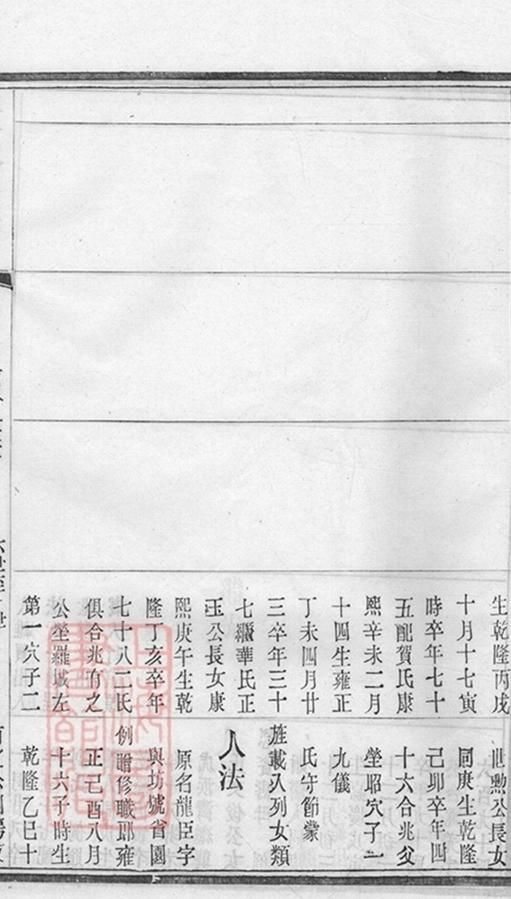 生乾隆丙戌
十月十七寅
時卒年七十
五配賀氏康
熙辛未二月
十四生雍正
丁未四月廿
三卒年三十
七繼華氏正
玉公長女康
熙庚午生乾
隆丁亥卒年
七十八二氏
俱合兆有之
公塋羅城左
第一穴子二
世勲公長女
同庚生乾隆
己卯卒年四
十六合兆父
塋昭穴子一
九儀
氏守節蒙
旌載入列女類
人法
原名龍臣字
與坊號省園
例贈修職郎雍
正己酉八月
十六子時生
乾隆乙巳十